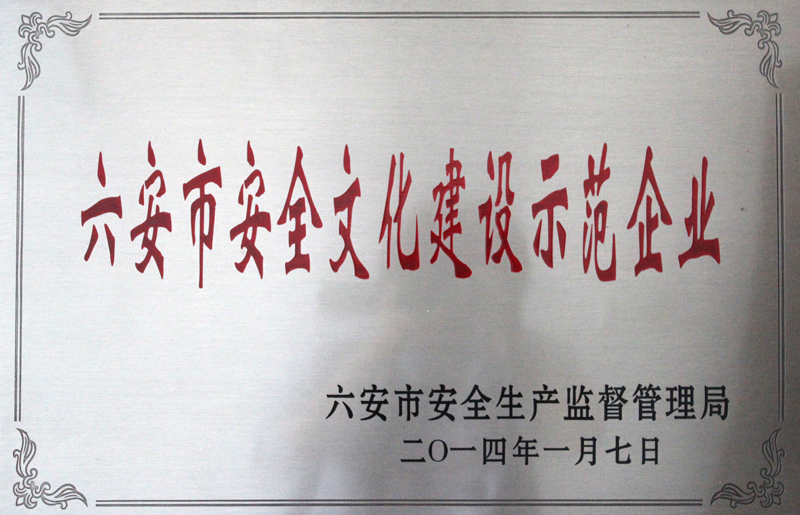 六安市安全文化建设示范企业
六安市安全生产监督管理局
二〇一四年一月七日